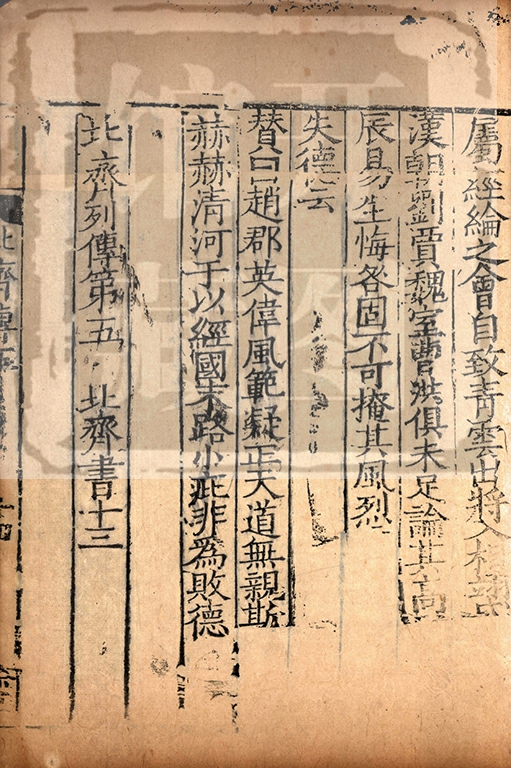 屬經綸之會自致青雲出將入相
漢朝劉賈魏室曹洪俱未足論其高
辰易生悔咎固不可掩其風烈
失德云
贊曰趙郡英偉風範疑正天道無親斯
赫赫清河于以經國末路小疵非為敗德
北齊列傳第五 北齊書十三
北齊傳五